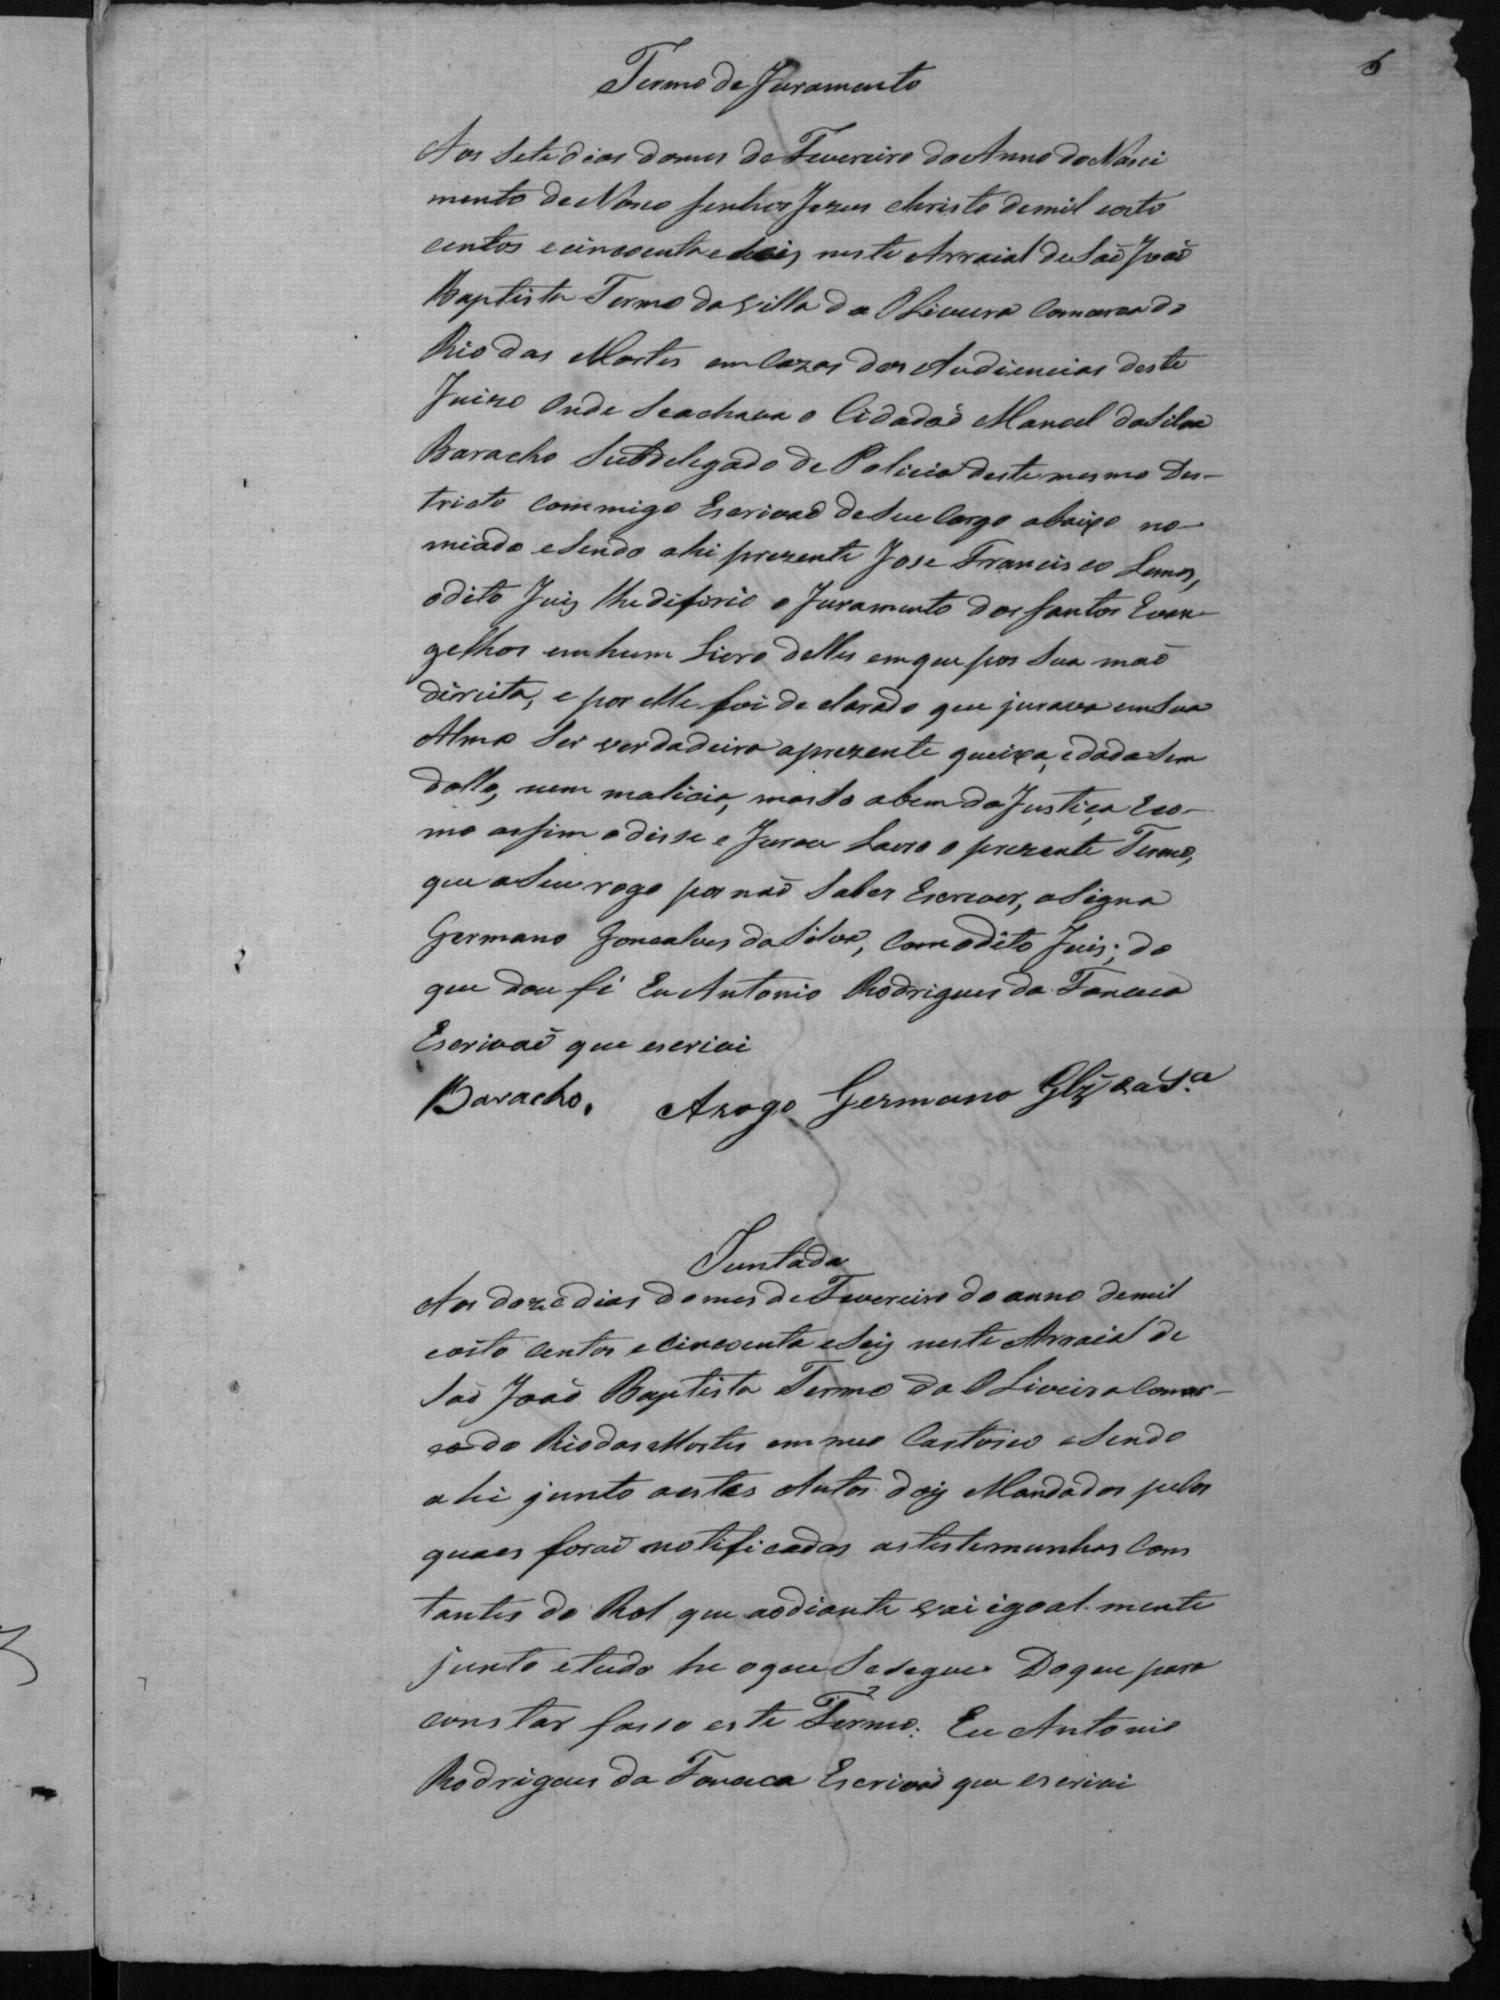 6
Termo de Juramento
Aos sete dias do mes de Fevereiro do Anno do Nasci
mento de Nosso Senhor Jezus Christo de mil oito
centos e cincoenta e seis neste Arraial de Saõ Joaõ
Baptista Termo da Villa da Oliveira Comarca do
Rio das Mortes em Cazas das Audiencias deste
Juizo onde se achava o Cidadaõ Manoel da Silva
Baracho Subdelegado de Policia deste mesmo Des-
tricto commigo Escrivaõ de seu Cargo abaixo no-
miado e sendo ahi prezente Jose Francisco Lemos,
o dito Juiz lhe difirio o Juramento dos Santos Evan-
gelhos em hum Livro delles em que pos sua maõ
direita, e por elle foi declarado que jurava em sua
Alma ser verdadeira a prezente queixa, e dada sem
dollo, nem malicia, mas so a bem da Justiça E co-
mo assim o disse e Jurou Lavro o prezente Termo,
que a seu rogo por naõ saber Escrever, asigna
Germano Gonçalves da Silva, com o dito Juis; do
que dou fé Eu Antonio Rodrigues da Fonceca
Escrivaõ que escrivi
Baracho. Arogo Germano Glz̃ da S.a
Juntada
Aos doze dias do mes de Fevereiro do anno de mil
oito centos e cincoenta e seis neste Arraial de
Saõ Joaõ Baptista Termo da Oliveira Comar-
ca do Rio das Mortes em meo Cartorio e sendo
ahi junto a estes Autos dois Mandados pelos
quaes foraõ notificadas as testemunhas Cons
tantes do Rol que aodiante vai igoalmente
junto e tudo he o que se segue. Do que para
constar fasso este Termo: Eu Antonio
Rodrigues da Fonceca Escrivaõ que escrivi